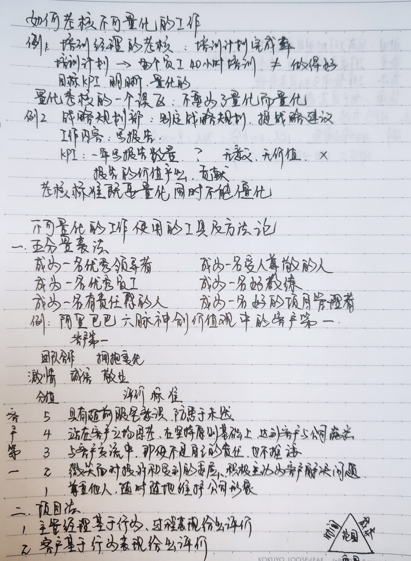 如何考核不可量化的工作
例1 培训经理的考核：培训计划完成率
培训计划 → 每个员工40小时培训 ≠ 做得好
目标KPI 明晰 量化的
量化考核的一个误区：不要为了量化而量化
例2 战略规划部：制定战略规划，提战略建议
工作内容：写报告
KPI：一年写报告数量 ？ 无意义，无价值 ×
报告的价值产出，贡献
考核标准既要量化同时不能僵化
不可量化的工作使用的工具及方法论
一、五分量表法
成为一名优秀领导者 成为一名受人尊敬的人
成为一名优秀员工 成为一名好教练
成为一名有责任感的人 成为一名好的项目管理者
例：阿里巴巴六脉神剑价值观中的客户第一
客户第一
团队合作 拥抱变化
激情 诚信 敬业
分值 评价标准
客 5 具有超前服务意识，防患于未然
户 4 站在客户立场思考，在坚持原则基础上，达到客户与公司满意
第 3 与客户交流中，即使不是自己的责任，也不推诿
一 2 微笑面对投诉和受到的委屈，积极主动为客户解决问题
1 尊重他人，随时随地维护公司形象
二、项目法
1 主管经理基于行为，过程表现给出评价
2 客户基于行为表现给出评价
时间
成本
范围